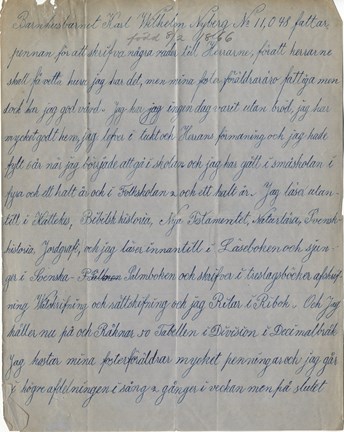 Barnhusbarnet Karl Wilhelm Nyberg No 11,048 fattar,
född 8/2 66
pennan för att skrifva några rader till Herrarne, för att herrarne
skall få vetta huru jag har det, men mina fosterföräldrar äro fattiga men
dock har jag god vård. Jag har jag ingen dag varit utan bröd, jag har
mycket godt hem, jag lefver i tukt och Herrans förmaning och jag hade
fylt år när jag började att gå i skolan och jag har gått i småskolan i
fyra och ett halft år och i Folkskolan 2 och ett halft år. Jag läser utan-
till i Kattekes, Bibelsk historia, Nya Testamentet, Naturlära, Svensk-
historia Jordgraf, och jag läser innantill i Läseboken och sjun-
ger i Svenska Psalmboken och skrifver i treslagsböcker afskrif-
ning Välskrifning och rättskrifning och jag Ritar i Ritbok. Och Jag
håller nu på och Räknar 10 Tabellen i Division i Decimalbråk
Jag kostar mina fosterföräldrar mycket penningar och jag går
i högre afdelningen i sång 2 gånger i veckan men på slutet